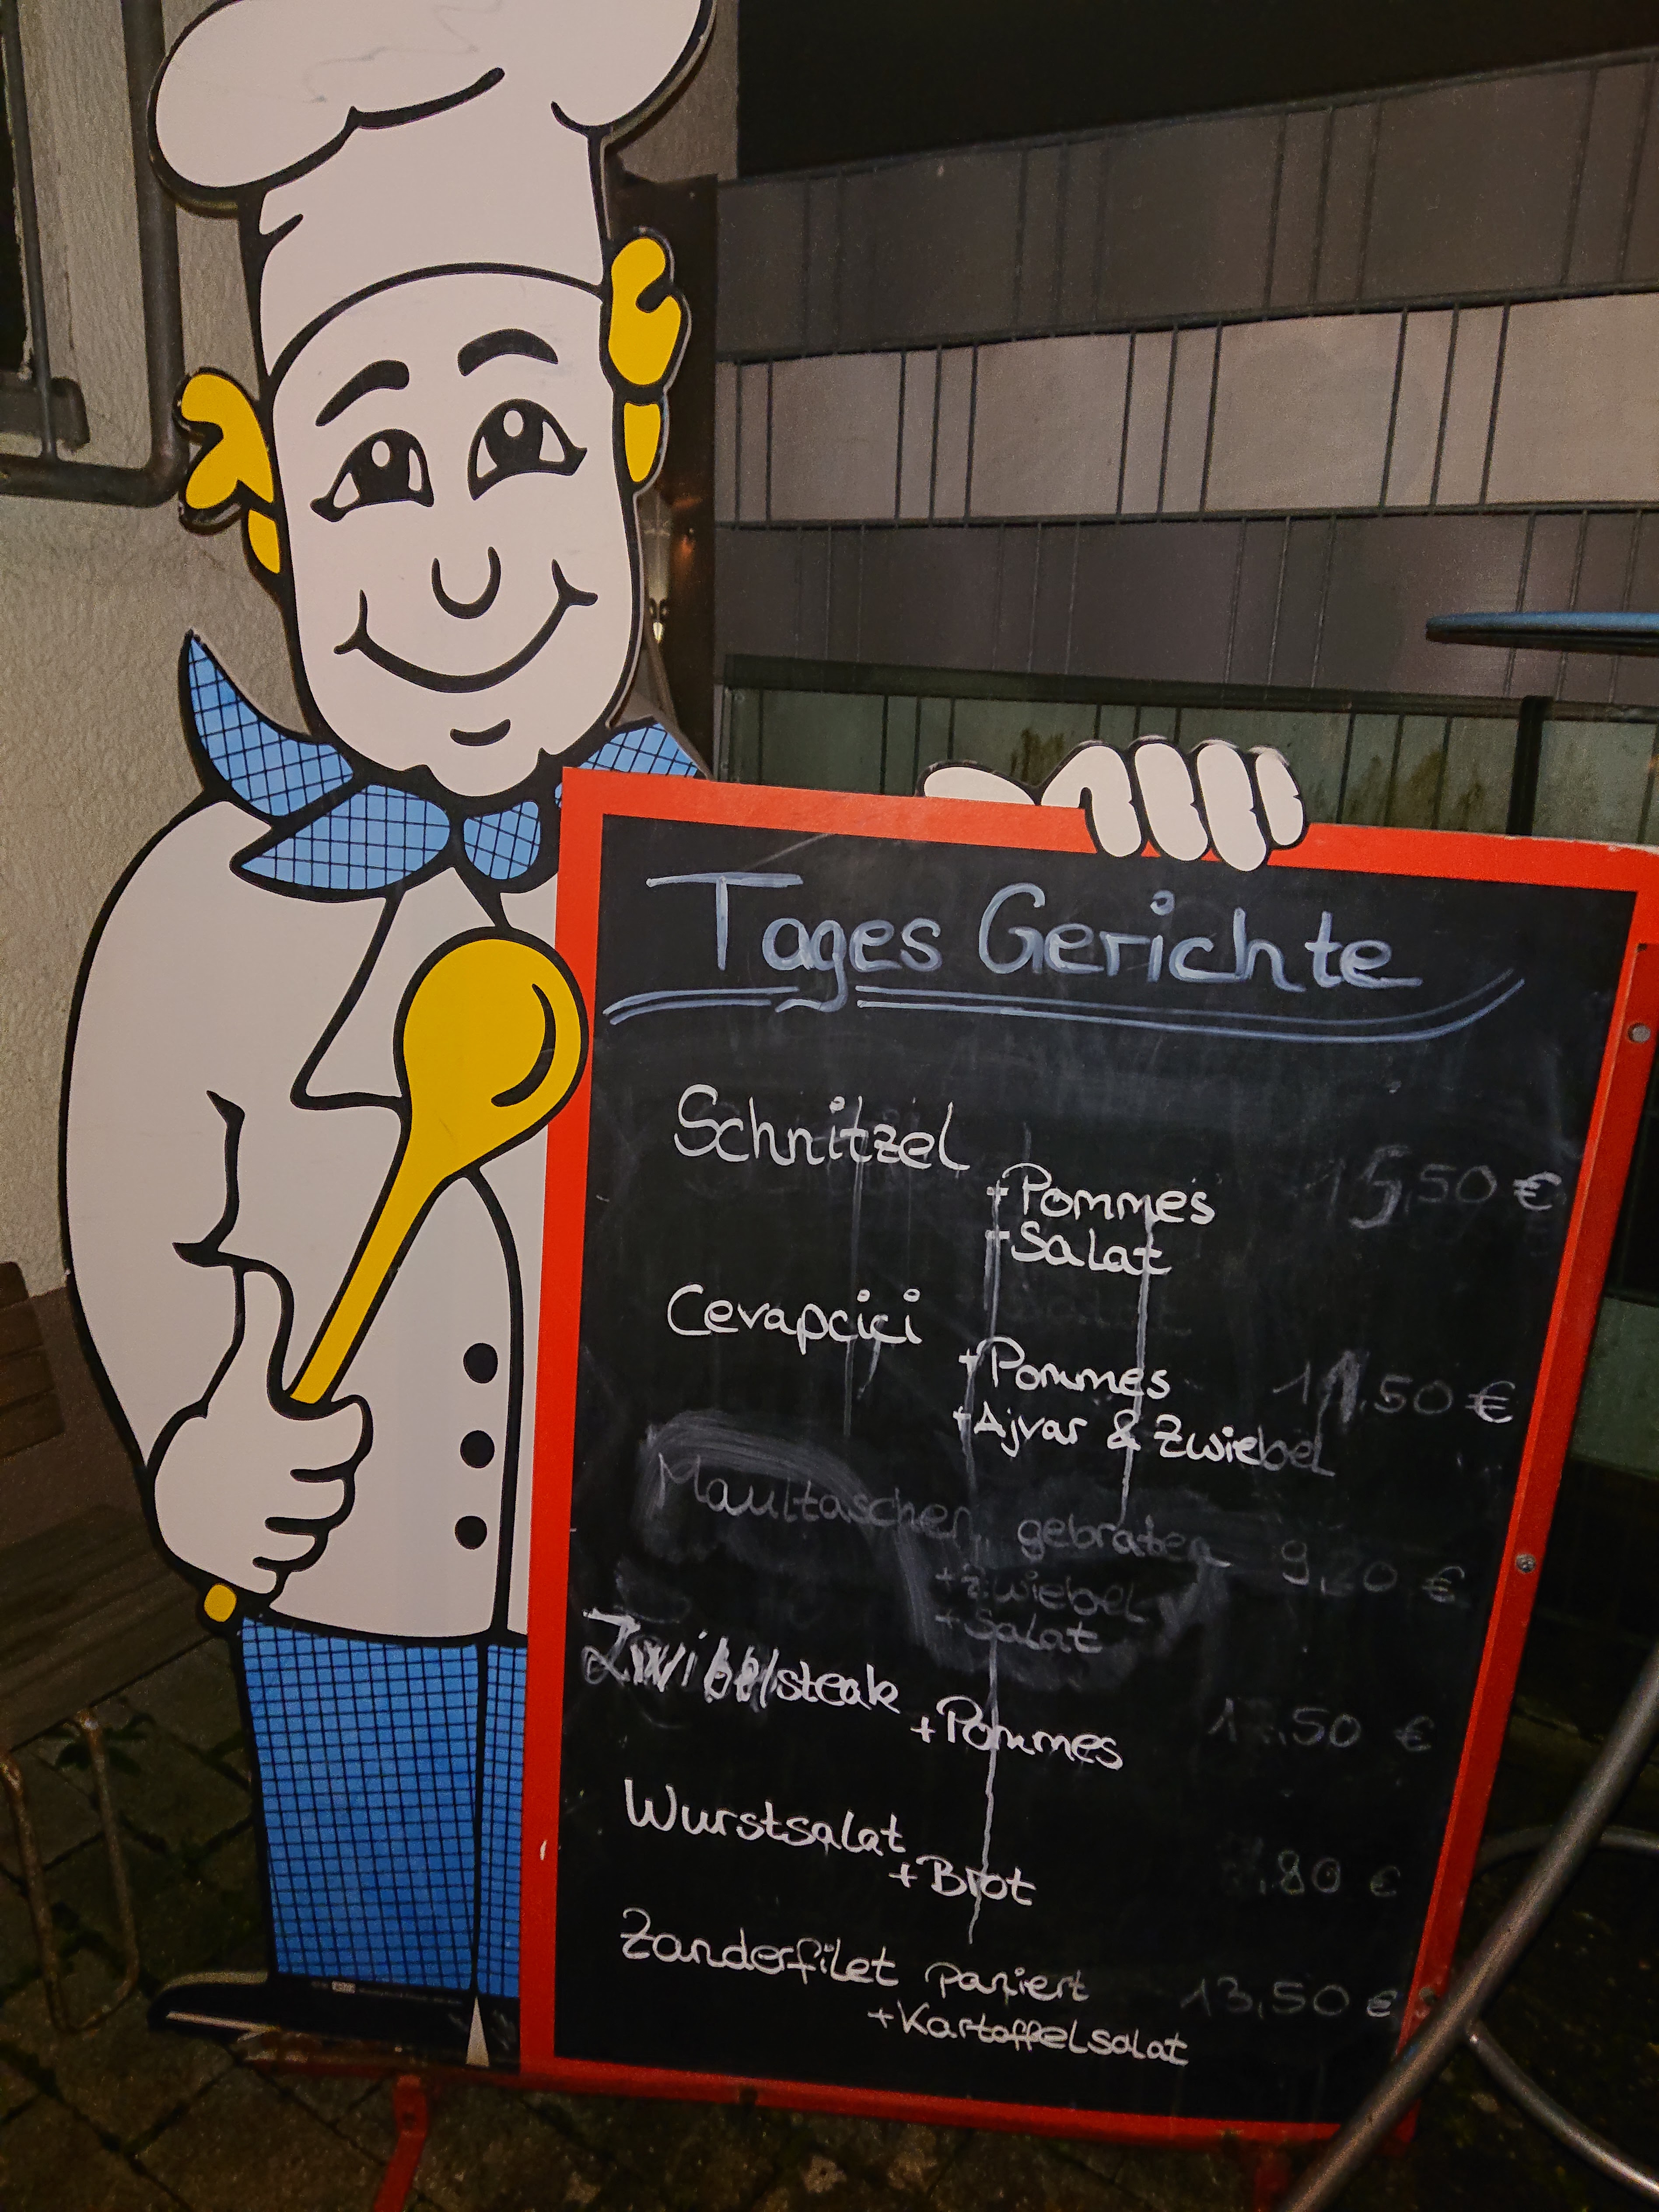 Tages Gerichte
Schnitzel
+Pommes 15,50 €
+Salat
Cevapcici
+Pommes 11.50 €
+Ajvar & Zwiebel
Maultaschen gebraten 9,20 €
+Zwiebel
+Salat
Zwibelsteak
+Pommes €
Wurstsalat
+Brot €
Zanderfilet paniert 13,50 €
+Kartoffelsalat